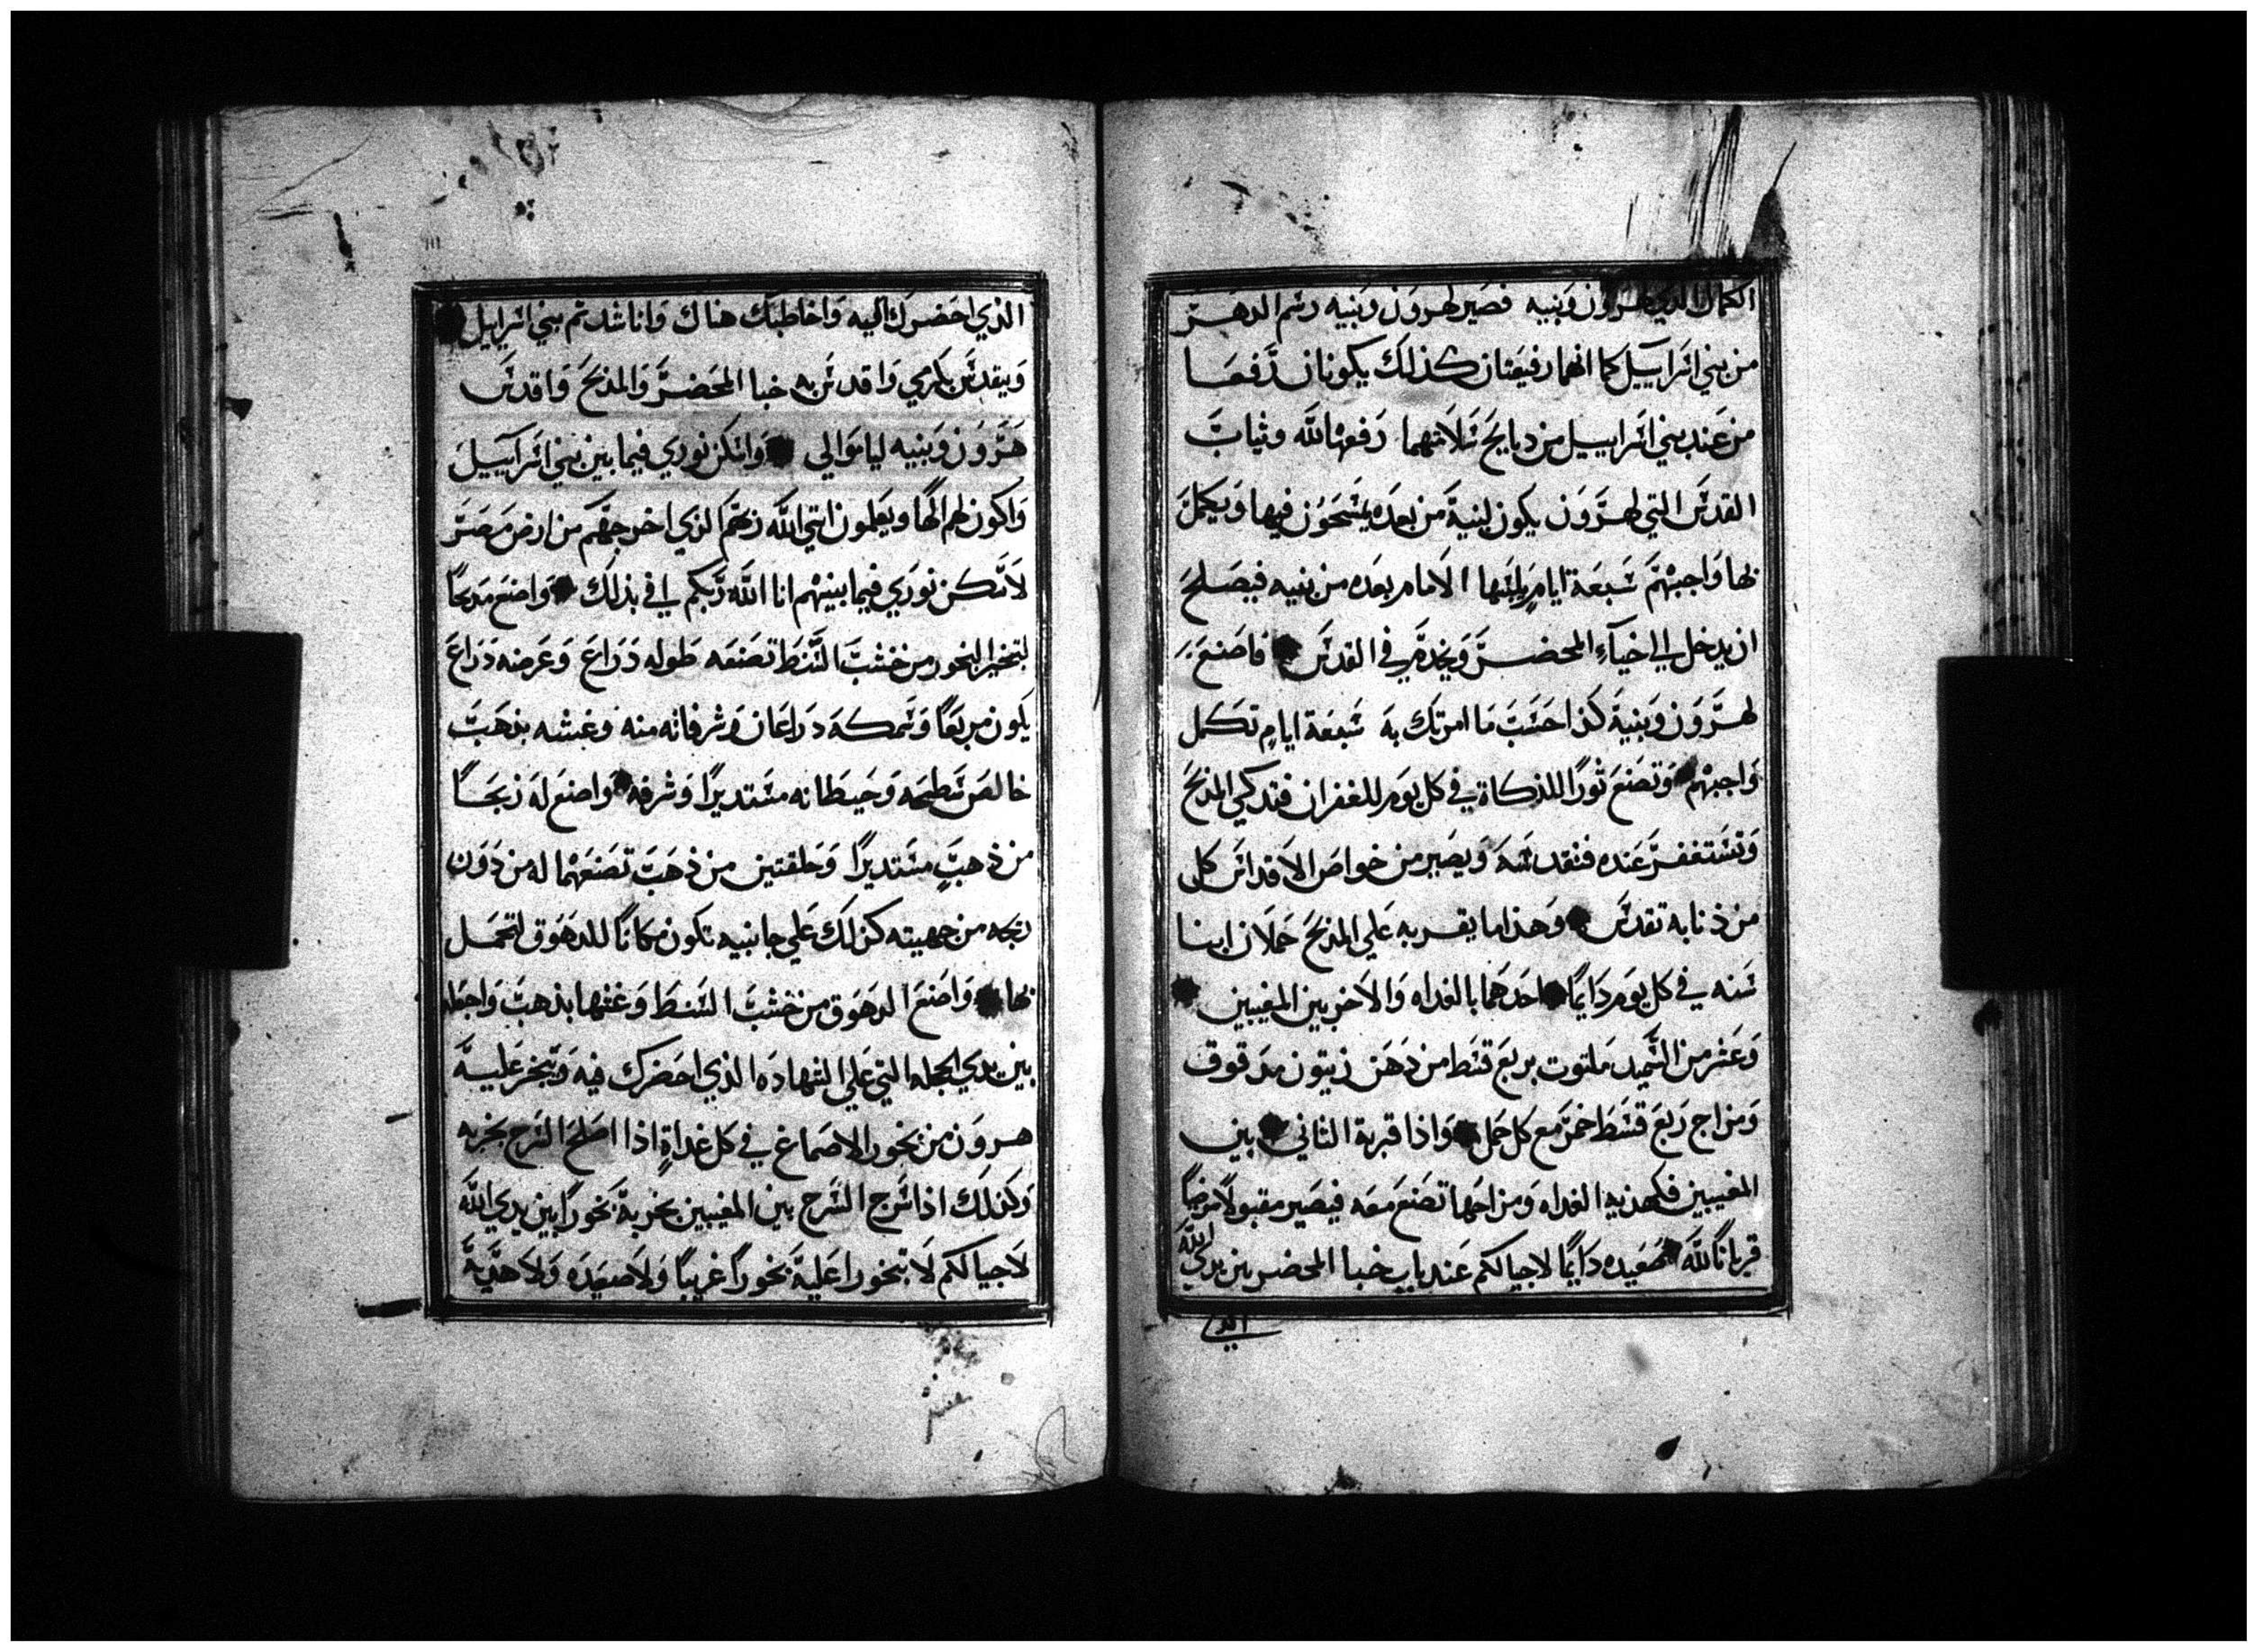 الكمال الذي لهرون وبنيه فصير لهرون وبنيه رسم الدهر
من بني اسراييل كما انهما رفيعتان كذلك يكونان رفعا
من عند بني اسراييل من دبايح سلامتهما رفعها لله وثياب
القدس التي لهرون يكون لبنية من بعده يمسحون فيها ويكمل
بها واجبهم سبعة ايام يلبسها الامام بعده من بنيه فيصلح
ان يدخل الي خبآء المحضر ويخدم في القدس فاصنع
لهرون وبنية كذا حسب ما امرتك به سبعة ايام تكمل
واجبهم وتصنع ثورًا للذكاة في كل يوم للغفران فتدكي المذبح
وتستغفر عنده فتقدسه ويصير من خواص الاقداس كل
من ذنا به تقدس وهذا ما يقرب به علي المذبح حملان ابنا
سنه في كل يوم دايمًا احدهما بالغداه والاخر بين المغيبين
وعشر من السميد ملتوت بربع قسط من دهن زيتون مدقوق
ومزاج ربع قسط خمر مع كل حمل واذا قربة الثاني بين
المغيبين فكهديه الغداه ومزاجها تصنع معه فيصير مقبولا مرضيًا
قربانًا لله صعيده دايمًا لاجيالكم عند باب خبا المحضر بين يدي الله
الذي
الذي احضرك اليه واخاطبك هناك واناشد ثم بني اسراييل
ويتقدس بكرمي واقدس به خبا المحضر والمذبح واقدس
هرون وبنيه لياموالي واسكن نوري فيما بين بني اسراييل
واكون لهم الها ويعلمون انني الله ربهم الذي اخرجهم من ارض مصر
لاسكن نوري فيما بينهم انا الله ربكم افي بذلك واصنع مدبحًا
لتبخير البخور من خشب السنط تصنعه طوله ذراع وعرضه ذراع
يكون مربعًا وسمكه دراعان وشرفاته منه وغشه بذهب
خالص سطحه وحيطانه مستديرًا وشرفه واصنع له زيجًا
من ذهب مستديرًا وحلقتين من ذهب تصنعهما له من دون
زيجه من جهيته كذلك علي جانبيه تكون مكانًا للدهوق لتحمل
بها واصنع الدهوق من خشب السنط وغشها بذهب واجعله
بين يدي الجله التي علي الشهاده الذي احضرك فيه ويبخر علية
هرون من بخور الاصماغ في كل غداةٍ اذا اصلح السرج بخر به
وكذلك اذا اسرج السرج بين المغيبين بخر بة بخورًا بين يدي الله
لاجيالكم لا تبخورا علية بخورًا غريبًا ولا صعيده ولا هدية